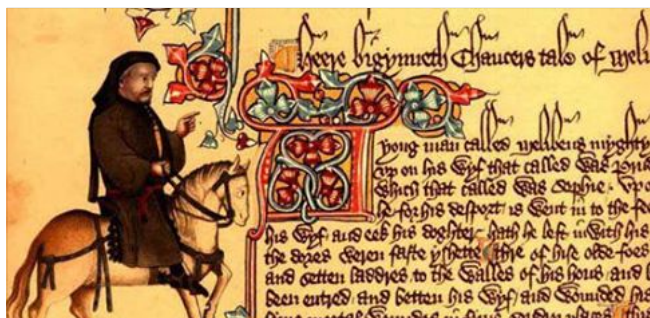 Heere bigynneth Chaucers tale of Meli
A yong man called Melibeus myghty
up on his Wyf that called was Prud
Which that called was Sophie . Upo
he for his desport is went in to the fe
his Wyf and eek his doghter hath he left in with his
the dores weren faste yshette / thre of hise olde foes
and setten laddres to the walles of his hous and b
been entred / and betten his Wyf / and wounded his